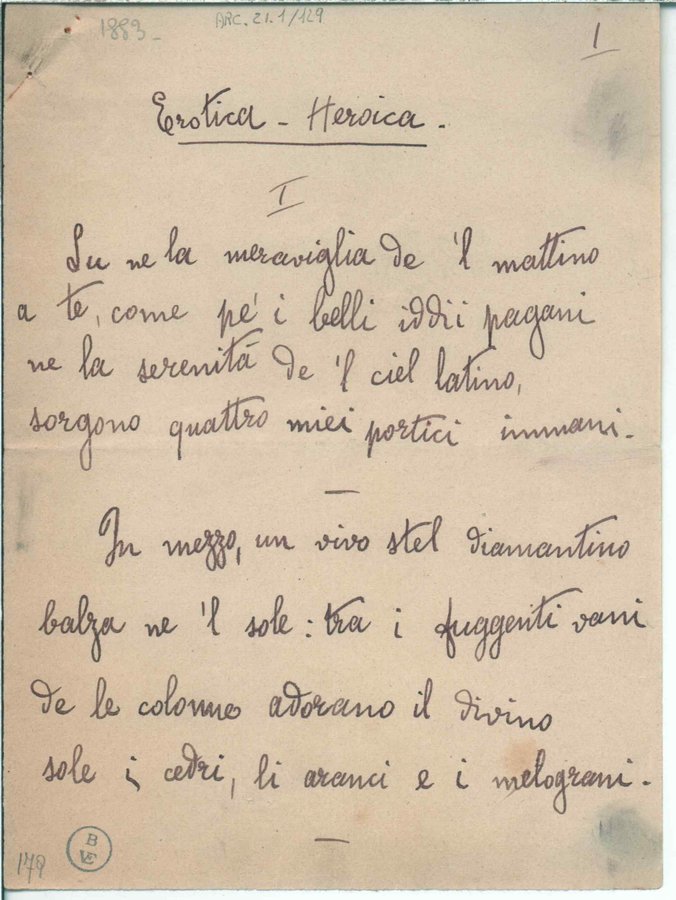 1883-
ARC. 21. 1/129
1
Erotica - Heroica.
I
Su ne la meraviglia de 'l mattino
a te, come pe' i belli iddii pagani
ne la serenità de 'l ciel latino,
sorgono quattro miei portici immani.
In mezzo, un vivo stel diamantino
balza ne 'l sole: tra i fuggenti vani
de le colonne adorano il divino
sole i cedri, li aranci e i melograni.
179
B
VE